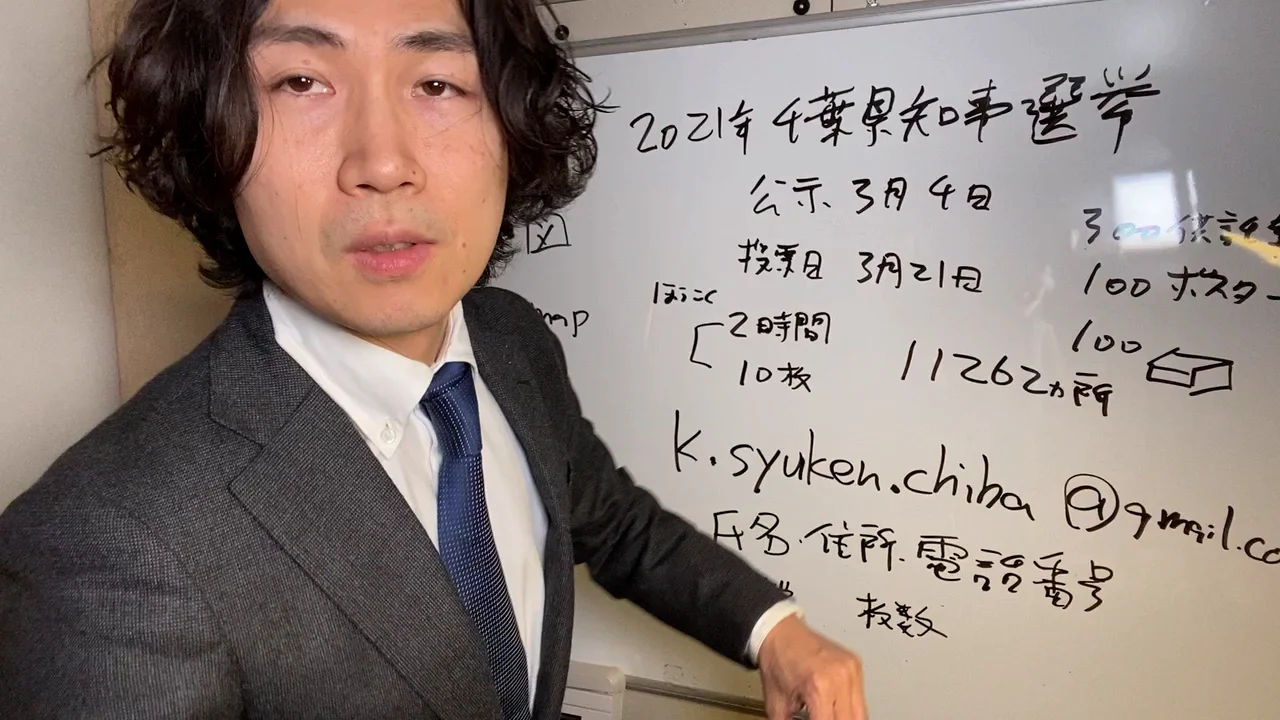 2021年 千葉県知事選挙
公示 3月4日
投票日 3月21日
300 供託金
100 ポスター
100
2時間
10枚
11262ヵ所
k.syuken.chiba@gmail.co
氏名・住所・電話番号
枚数